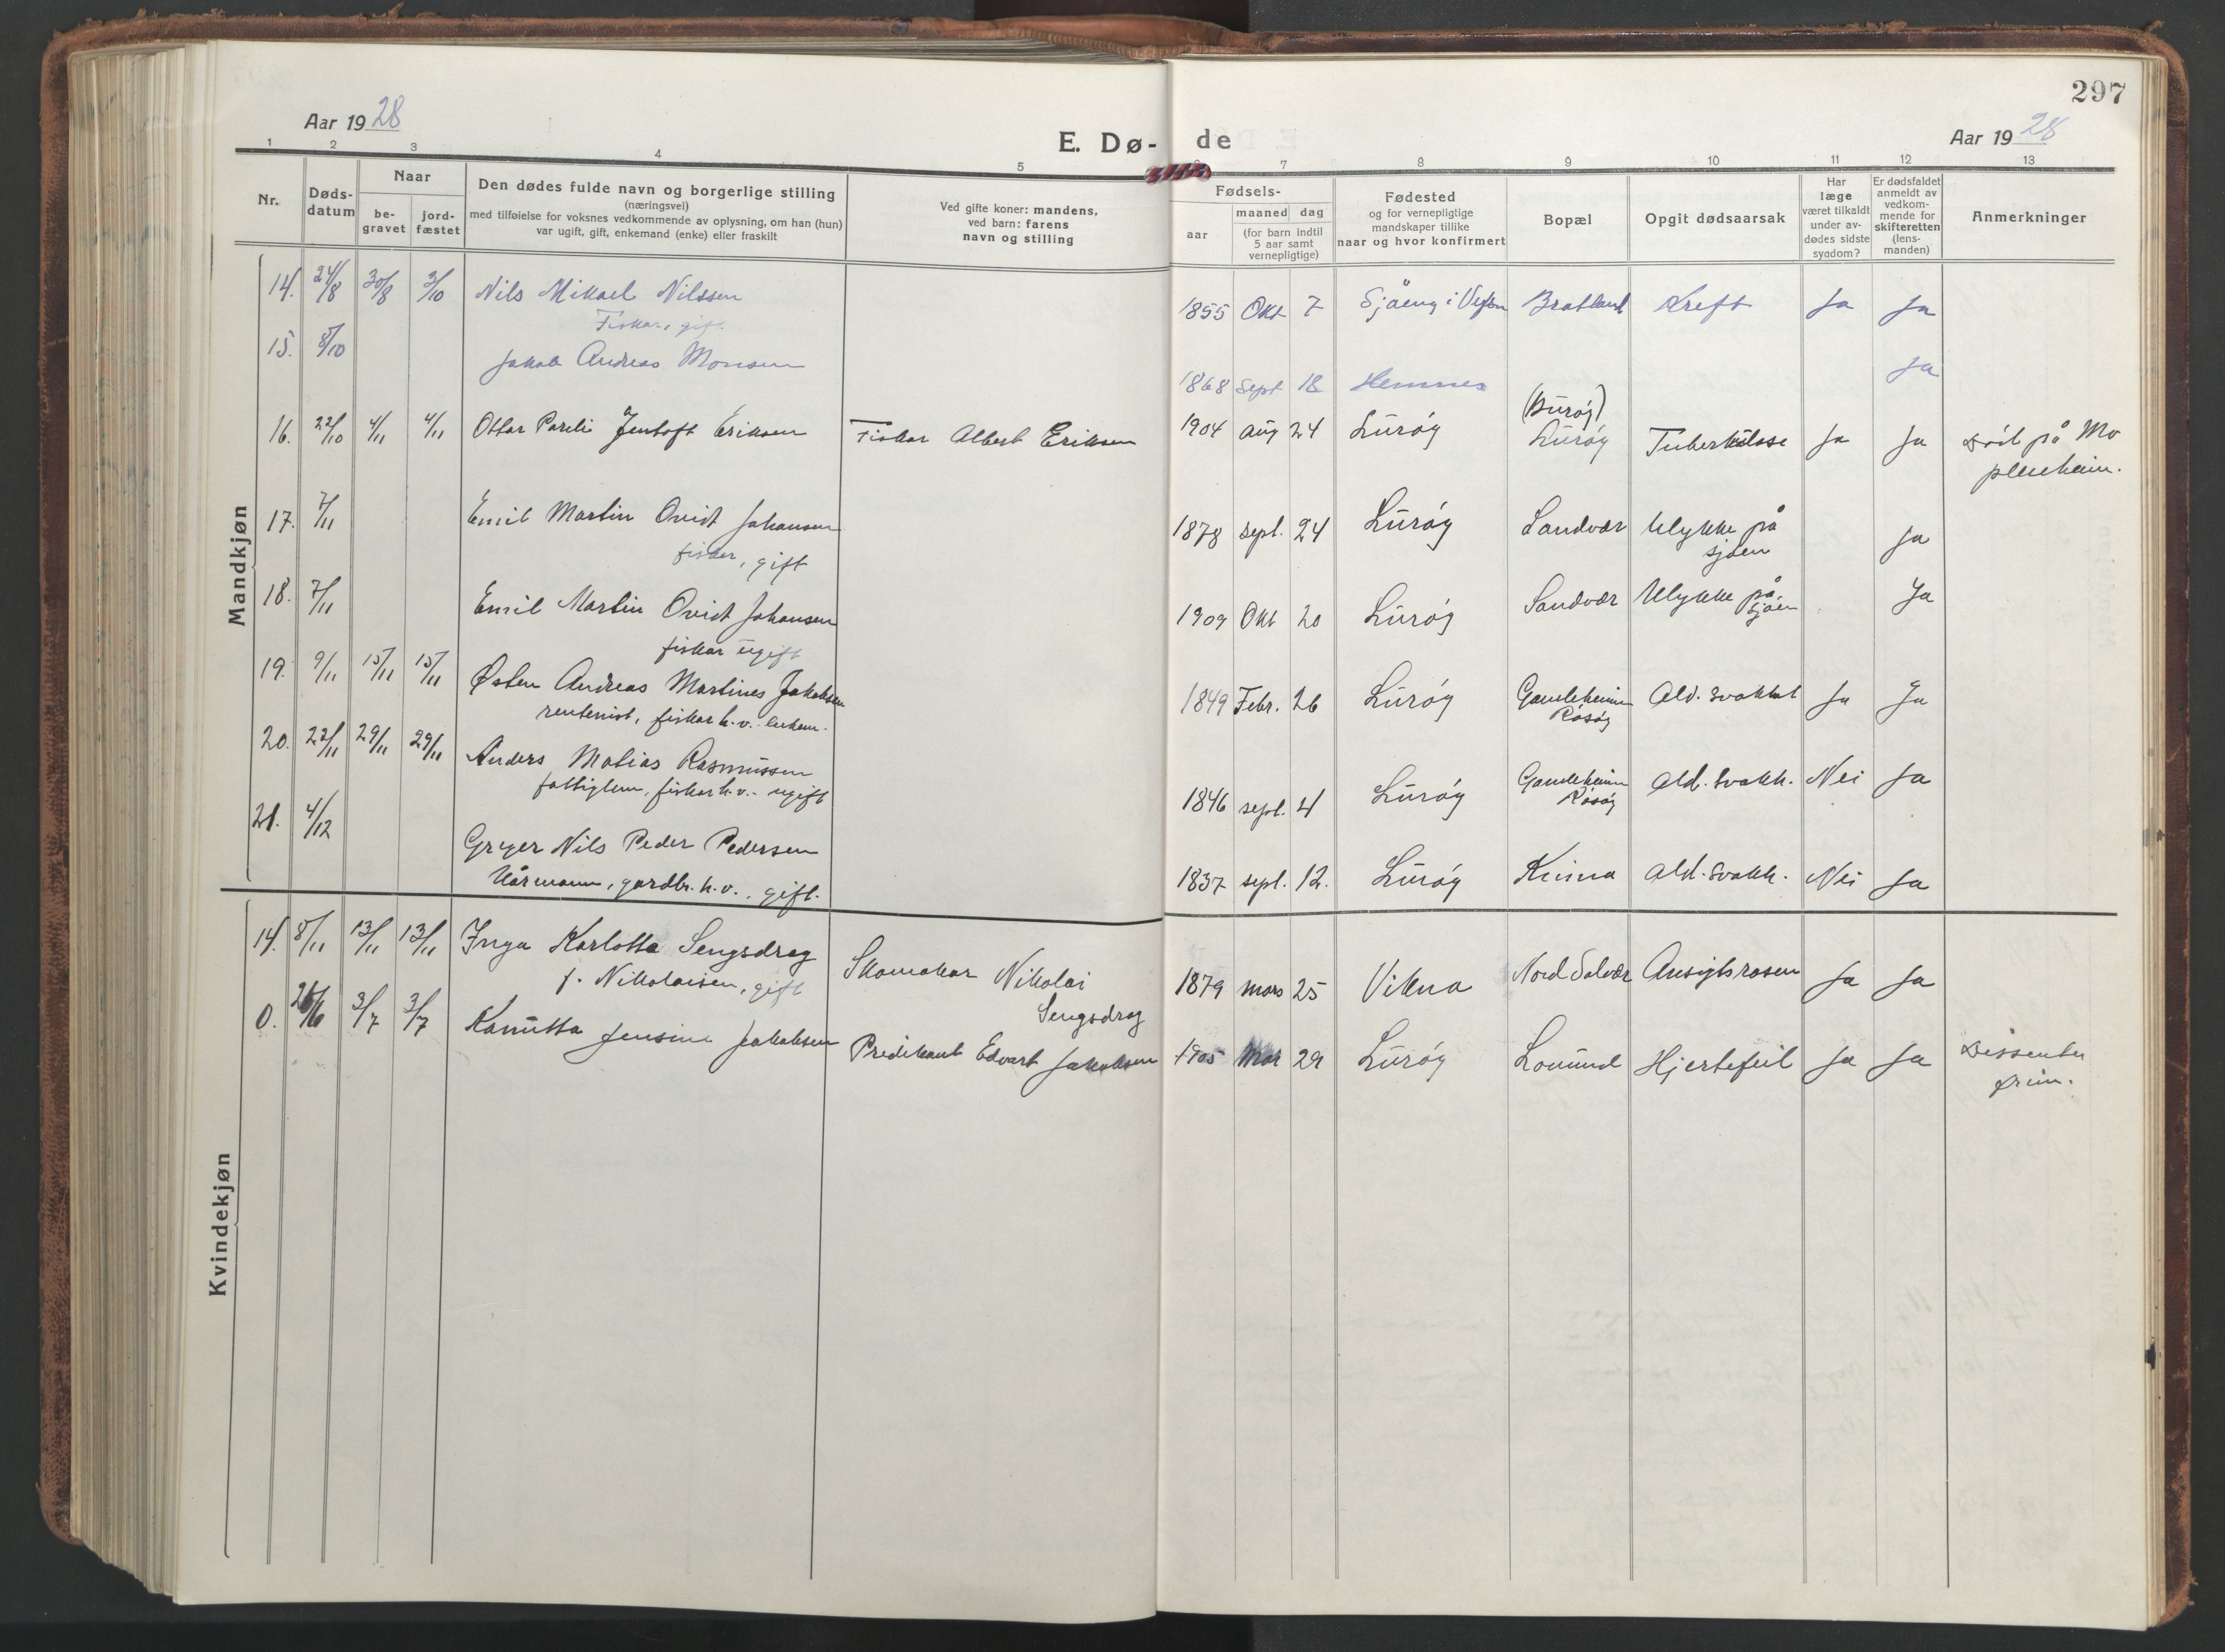 297
Aar 1928
E. Dø-de
Aar 1928
1 2 3 4 5 6 7 8 9 10 11 12 13
Nr.
Døds-
datum
Naar
be-
gravet
jord-
fæstet
Den dødes fulde navn og borgerlige stilling
(næringsvei)
med tilføielse for voksnes vedkommende av oplysning, om han (hun)
var ugift, gift, enkemand (enke) eller fraskilt
Ved gifte koner: mandens,
ved barn: farens
navn og stilling
Fødsels-
aar
maaned dag
(for barn indtil
5 aar samt
vernepligtige)
Fødested
og for vernepligtige
mandskaper tillike
naar og hvor konfirmert
Bopæl
Opgit dødsaarsak
Har
læge
været tilkaldt
under av-
dødes sidste
sygdom?
Er dødsfaldet
anmeldt av
vedkom-
mende for
skifteretten
(lens-
manden)
Anmerkninger
Mandkjøn
14. 24/8 30/8 3/10 Nils Mikael Nilssen 1855 Okt 7 Sjåeng i Vefsn Bratland Kreft Ja Ja
Fiskar, gift
15. 8/10 Jakob Andreas Monsen 1868 Sept 18 Hemnes Ja
(Burøy)
16. 22/10 4/11 4/11 Ottar Pareli Jentoft Eriksen Fiskar Albert Eriksen 1904 Aug 24 Lurøy Lurøy Tuberkulose Ja Ja Død på Mo
pleieheim.
17. 7/11 Emil Martin Ovidt Johansen 1878 sept. 24 Lurøy Sandvær Ulykke på
sjøen Ja
fisker, gift
18. 7/11 Emil Martin Ovidt Johansen 1909 Okt 20 Lurøy Sandvær Ulykke på
sjøen Ja
fiskar ugift
19. 9/11 15/11 15/11 Østen Andreas Martines Jakobsen 1849 Febr. 26 Lurøy Gamleheimen
Røsøy Ald. svakhet Ja Ja
rentenist, fiskar h.v. - enkem.
20. 22/11 29/11 29/11 Anders Matias Rasmussen 1846 sept. 4 Lurøy Gamleheimen
Røsøy Ald. svakh. Nei Ja
fattiglem, fiskar h.v. - ugift
21. 4/12 Gryer Nils Peder Pedersen 1837 sept. 12. Lurøy Kvina Ald. svakh. Nei Ja
Kårmann, gardbr. h.v., gift.
Kvindekjøn
14. 8/11 13/11 13/11 Inga Karlotta Sengsdrag Skomakar Nikolai
Sengsdrag 1879 mars 25 Vikna Nord Solvær Ansigtsrosen Ja Ja
f. Nikolaisen, gift
0. 26/6 3/7 3/7 Kanutta Jensine Jakobsen Predikant Edvart Jakobsen 1905 Mar 29 Lurøy Lovund Hjertefeil Ja Ja Dissenter